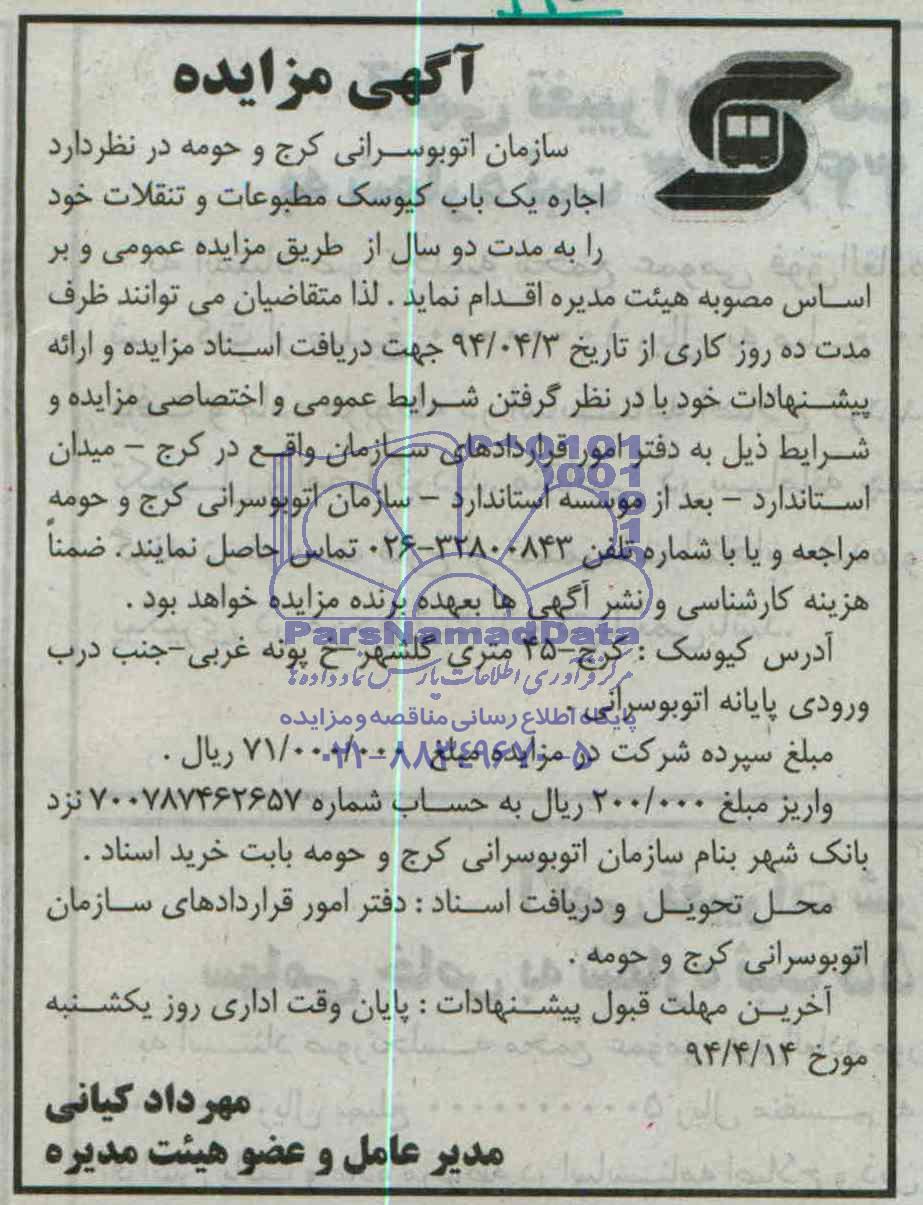 آگهی مزایده
سازمان اتوبوسرانی کرج و حومه در نظردارد
اجاره یک باب کیوسک مطبوعات و تنقلات خود
را به مدت دو سال از طریق مزایده عمومی و بر
اساس مصوبه هیئت مدیره اقدام نماید . لذا متقاضیان می توانند ظرف
مدت ده روز کاری از تاریخ ۹۴/۰۴/۳ جهت دریافت اسناد مزایده و ارائه
پیشنهادات خود با در نظر گرفتن شرایط عمومی و اختصاصی مزایده و
شرایط ذیل به دفتر امور قراردادهای سازمان واقع در کرج – میدان
استاندارد – بعد از موسسه استاندارد – سازمان اتوبوسرانی کرج و حومه
مراجعه و یا با شماره تلفن ۳۲۸۰۰۸۴۳-۰۲۶ تماس حاصل نمایند . ضمناً
هزینه کارشناسی و نشر آگهی ها بعهده برنده مزایده خواهد بود .
ParsNamadData
آدرس کیوسک : کرج-۴۵ متری گلشهر-خ پونه غربی-جنب درب
مرکز فرآوری اطلاعات پارس نماد داده ها
ورودی پایانه اتوبوسرانی .
پایگاه اطلاع رسانی مناقصه و مزایده
مبلغ سپرده شرکت در مزایده مبلغ ۷۱/۰۰۰/۰۰۰ ریال .
۰۲۱-۸۸۳۴۹۶۷۰-۵
واریز مبلغ ۲۰۰/۰۰۰ ریال به حساب شماره ۷۰۰۷۸۷۴۶۲۶۵۷ نزد
بانک شهر بنام سازمان اتوبوسرانی کرج و حومه بابت خرید اسناد .
محل تحویل و دریافت اسناد : دفتر امور قراردادهای سازمان
اتوبوسرانی کرج و حومه .
آخرین مهلت قبول پیشنهادات : پایان وقت اداری روز یکشنبه
مورخ ۹۴/۴/۱۴
مهرداد کیانی
مدیر عامل و عضو هیئت مدیره